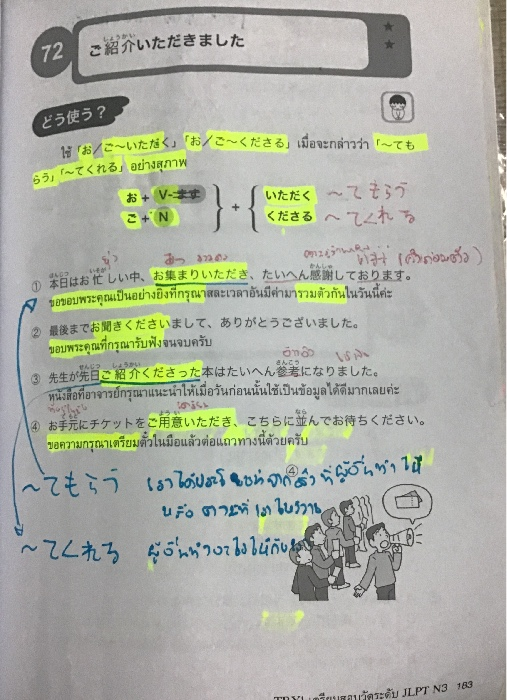 72
ご紹介いただきました
★
★
どう使う？
ใช้「お／ご〜いただく」「お／ご〜くださる」เมื่อจะกล่าวว่า「〜ても
らう」「〜てくれる」อย่างสุภาพ
お + V-ます
ご + N
+
いただく 〜てもらう
くださる 〜てくれる
① 本日はお忙しい中、お集まりいただき、たいへん感謝しております。
ขอขอบพระคุณเป็นอย่างยิ่งที่กรุณาสละเวลาอันมีค่ามารวมตัวกันในวันนี้ค่ะ
② 最後までお聞きくださいまして、ありがとうございました。
ขอบพระคุณที่กรุณารับฟังจนจบครับ
③ 先生が先日ご紹介くださった本はたいへん参考になりました。
หนังสือที่อาจารย์กรุณาแนะนำให้เมื่อวันก่อนนั้นใช้เป็นข้อมูลได้ดีมากเลยค่ะ
④ お手元にチケットをご用意いただき、こちらに並んでお待ちください。
ขอความกรุณาเตรียมตั๋วในมือแล้วต่อแถวทางนี้ด้วยครับ
〜てもらう
④
〜てくれる
TRY! เตรียมสอบวัดระดับ JLPT N3 183